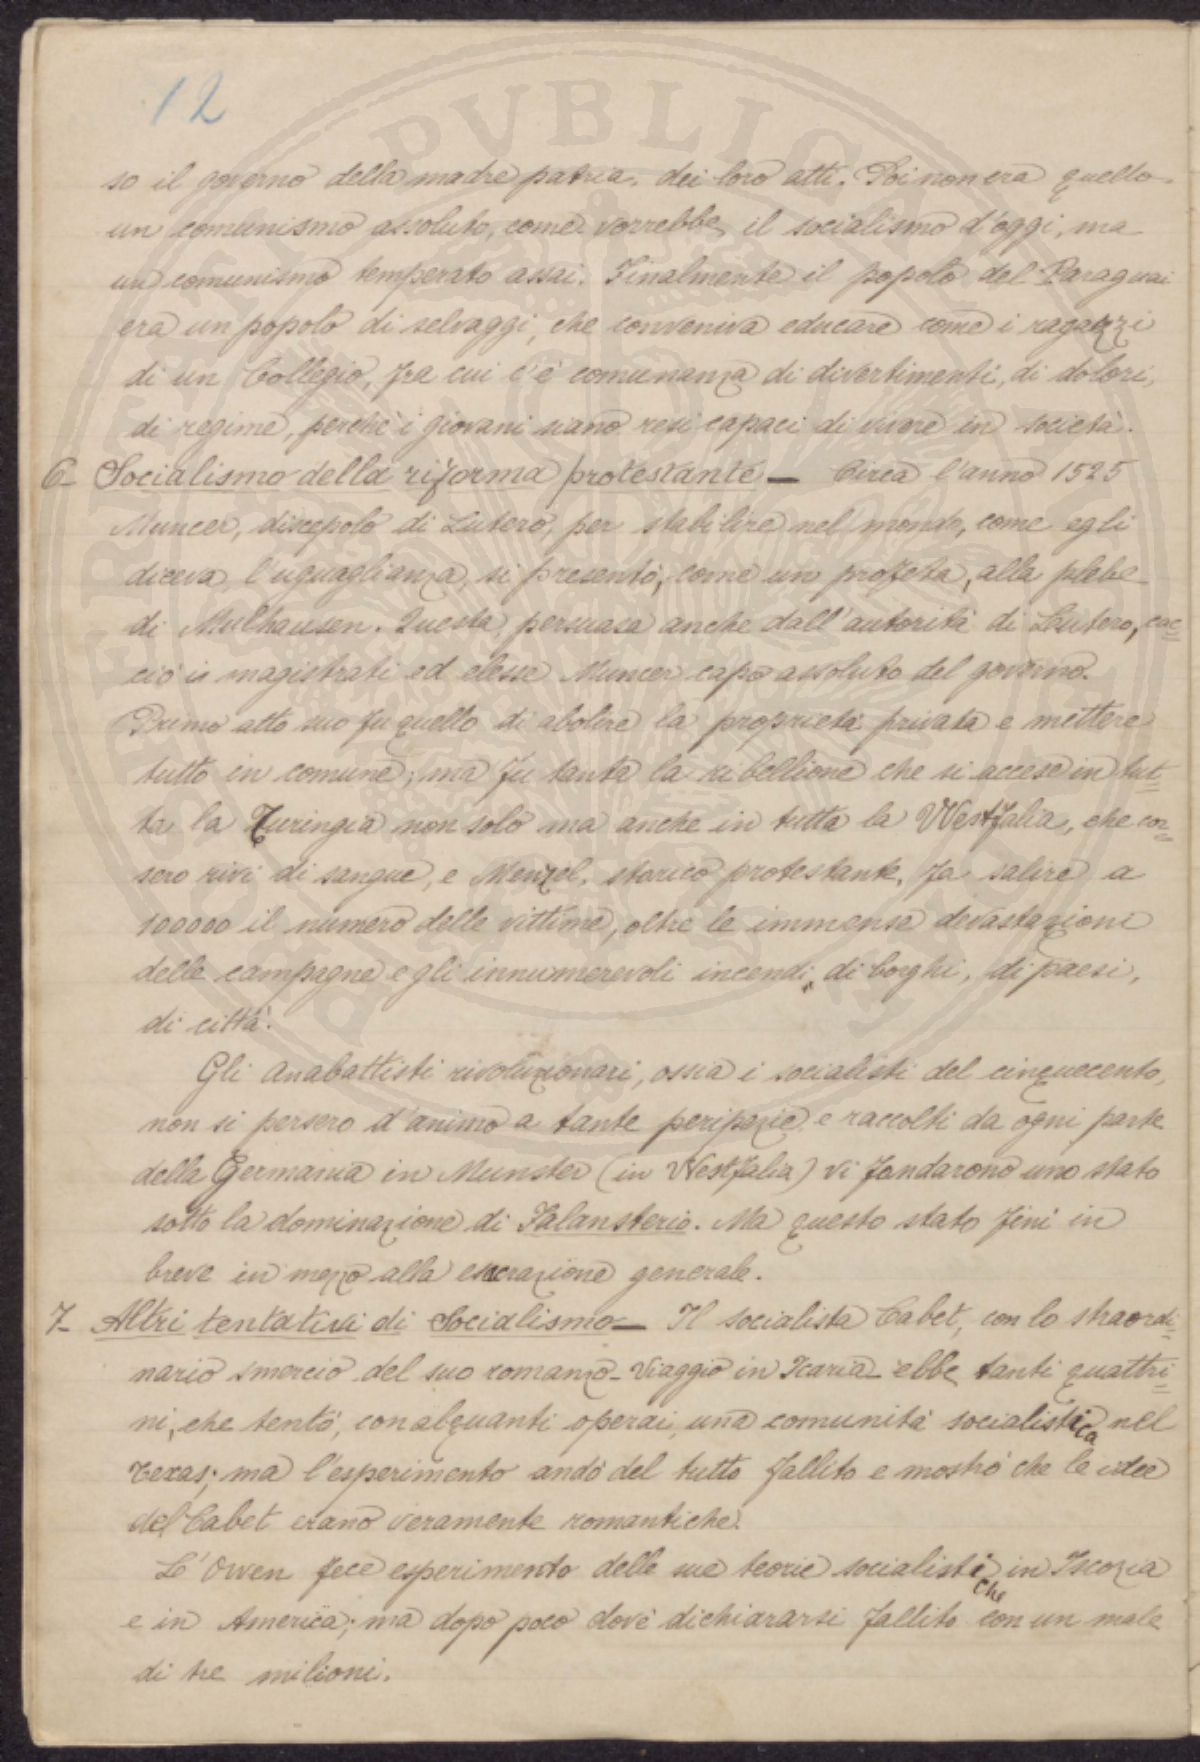 12
so il governo della madre patria. dei loro atti. Poi non era quello
un comunismo assoluto, come vorrebbe il socialismo d'oggi, ma
un comunismo temperato assai. Finalmente il popolo del Paraguai
era un popolo di selvaggi, che conveniva educare come i ragazzi
di un Collegio, fra cui c'è comunanza di divertimenti, di dolori,
di regime, perchè i giovani siano resi capaci di vivere in società.
6- Socialismo della riforma protestante — Circa l'anno 1525
Muncer, discepolo di Lutero, per stabilire nel mondo, come egli
diceva l'uguaglianza, si presentò, come un profeta, alla plebe
di Mulhausen. Questa, persuasa anche dall'autorità di Lutero, cac=
ciò i magistrati ed elesse Muncer capo assoluto del governo.
Primo atto suo fu quello di abolire la proprietà privata e mettere
tutto in comune; ma fu tanta la ribellione che si accese in tut=
ta la Turingia non solo ma anche in tutta la Westfalia, che cor=
sero rivi di sangue, e Menzel, storico protestante, fa salire a
100000 il numero delle vittime, oltre le immense devastazioni
delle campagne e gli innumerevoli incendi, di borghi, di paesi,
di città.
Gli Anabattisti rivoluzionari, ossia i socialisti del cinquecento,
non si persero d'animo a tante peripezie e raccolti da ogni parte
della Germania in Munster (in Westfalia) vi fondarono uno stato
sotto la dominazione di Falansterio. Ma questo stato finì in
breve in mezzo alla esecrazione generale.
7- Altri tentativi di Socialismo — Il socialista Cabet, con lo straordi=
nario smercio del suo romanzo - Viaggio in Icaria - ebbe tanti quattri=
ni, che tentò, con alquanti operai, una comunità socialistica nel
Texas; ma l'esperimento andò del tutto fallito e mostrò che le idee
del Cabet erano veramente romantiche.
L'Owen fece esperimento delle sue teorie socialistiche in Iscozia
e in America; ma dopo poco dovè dichiararsi fallito con un male
di tre milioni.